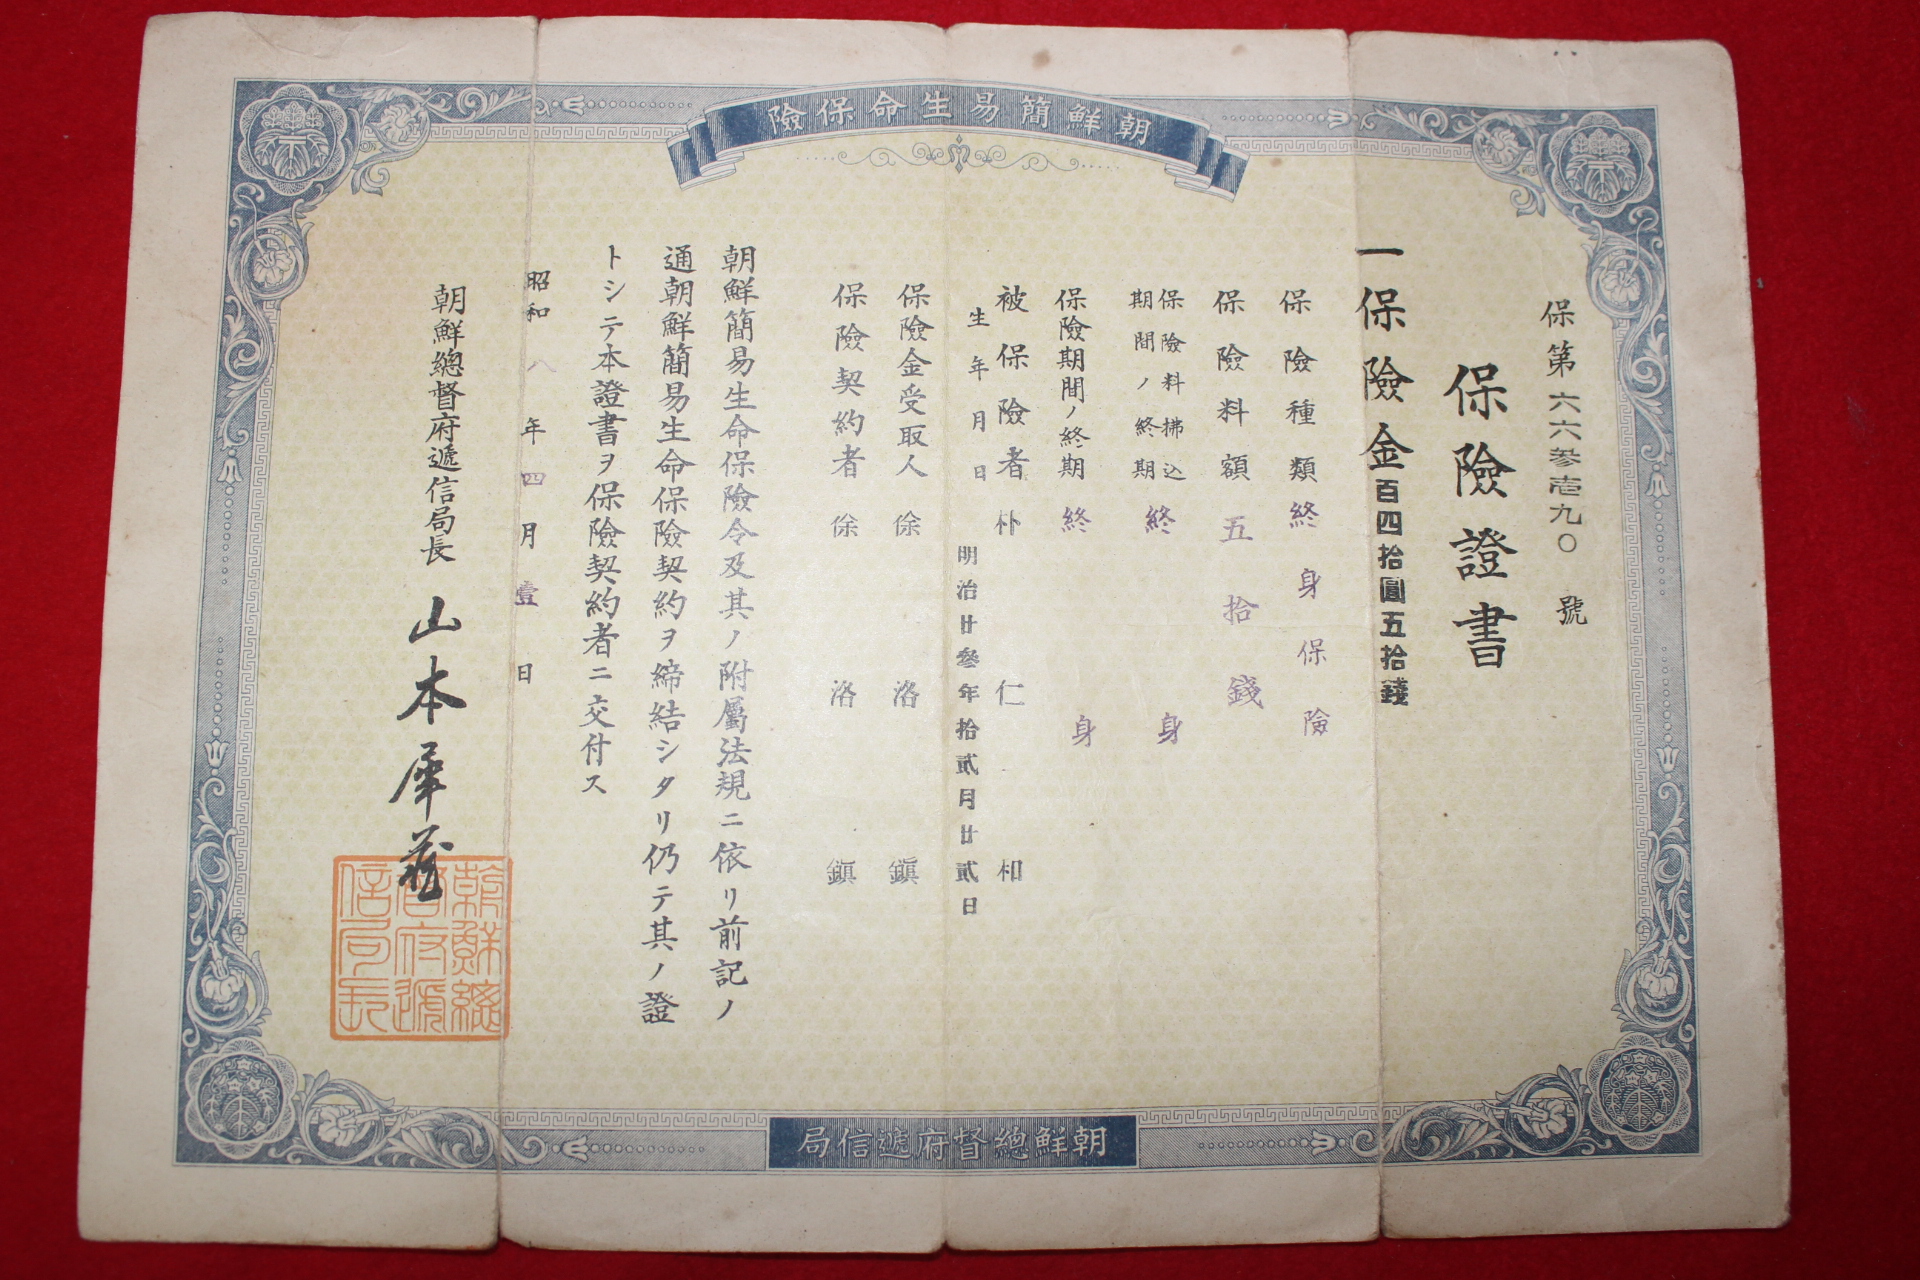 朝鮮簡易生命保險
保第六六参壱九〇號
保險證書
一保險金百四拾圓五拾錢
保險種類終身保險
保險料額五拾錢
保險料拂込
期間ノ終期終身
保險期間ノ終期終身
被保險者朴仁和
生年月日明治廿參年拾貳月廿貳日
保險金受取人徐洛鎭
保險契約者徐洛鎭
朝鮮簡易生命保險令及其ノ附屬法規ニ依リ前記ノ
通朝鮮簡易生命保險契約ヲ締結シタリ仍テ其ノ證
トシテ本證書ヲ保險契約者ニ交付ス
昭和八年四月壹日
朝鮮總督府遞信局長山本犀藏
朝鮮總
督府遞
信局長
朝鮮總督府遞信局